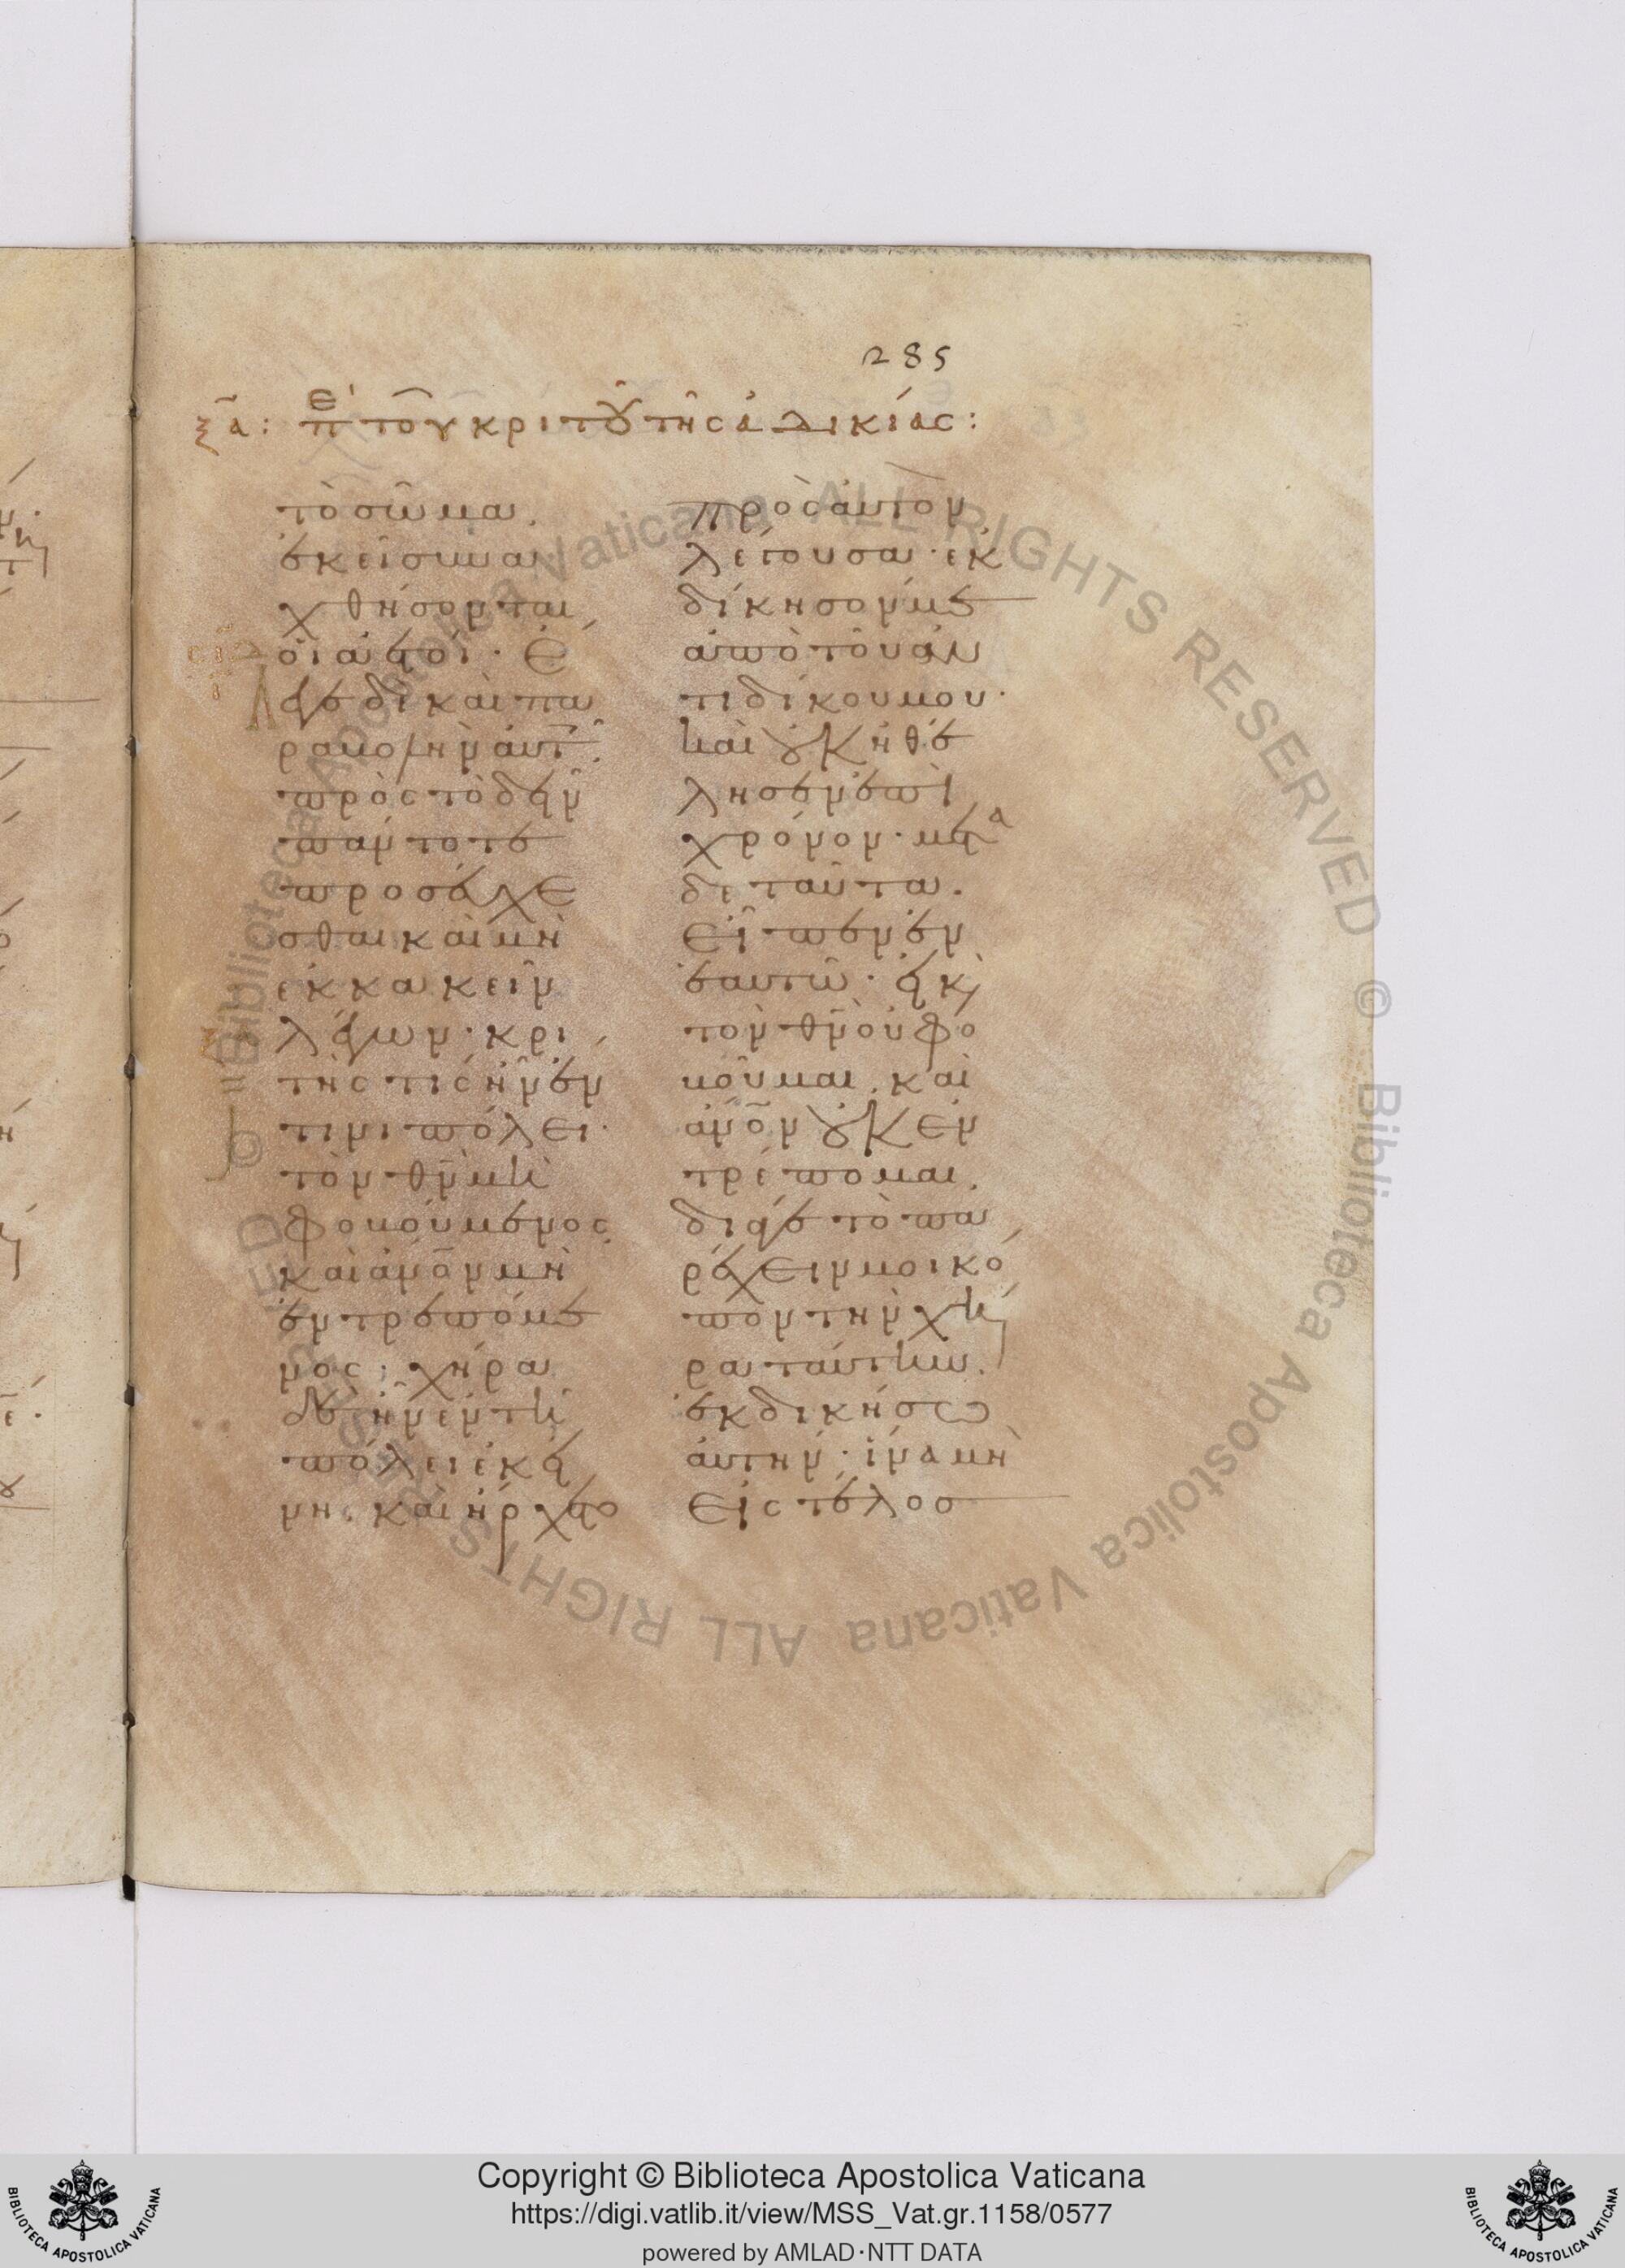 285
ξα: πε' τοῦ κριτοῦ τῆς ἀδικίας:
τὸ σῶμα.
ἐκεῖ συνα
χθήσονται
οἱ ἀετοί· Ἔ
λεγε δὲ καὶ πα
ραβολὴν αὐτοῖς
πρὸς τὸ δεῖν
πάντοτε
προσεύχε
σθαι καὶ μὴ
ἐκκακεῖν
λέγων· κρι
τής τις ἦν ἔν
τινι πόλει·
τὸν θν μὴ
φοβούμενος
καὶ ανον μὴ
ἐντρεπόμε
νος· χήρα
δὲ ἦν ἐν τῇ
πόλει ἐκεί
νη. καὶ ἤρχετο
πρὸς αὐτὸν
λέγουσα· ἐκ
δίκησόν με
ἀπὸ τοῦ ἀν
τιδίκου μου·
καὶ οὐκ ἠθέ
λησεν ἐπὶ
χρόνον· μετὰ
δὲ ταῦτα.
εἶπεν ἐν
ἑαυτῷ· εἰ καὶ
τὸν θν οὐ φο
βοῦμαι. καὶ
ανον οὐκ ἐν
τρέπομαι.
διά γε τὸ πα
ρέχειν μοι κό
πον τὴν χή
ραν ταύτην.
ἐκδικήσω
αὐτήν· ἵνα μὴ
εἰς τέλος
Copyright © Biblioteca Apostolica Vaticana
https://digi.vatlib.it/view/MSS_Vat.gr.1158/0577
powered by AMLAD·NTT DATA